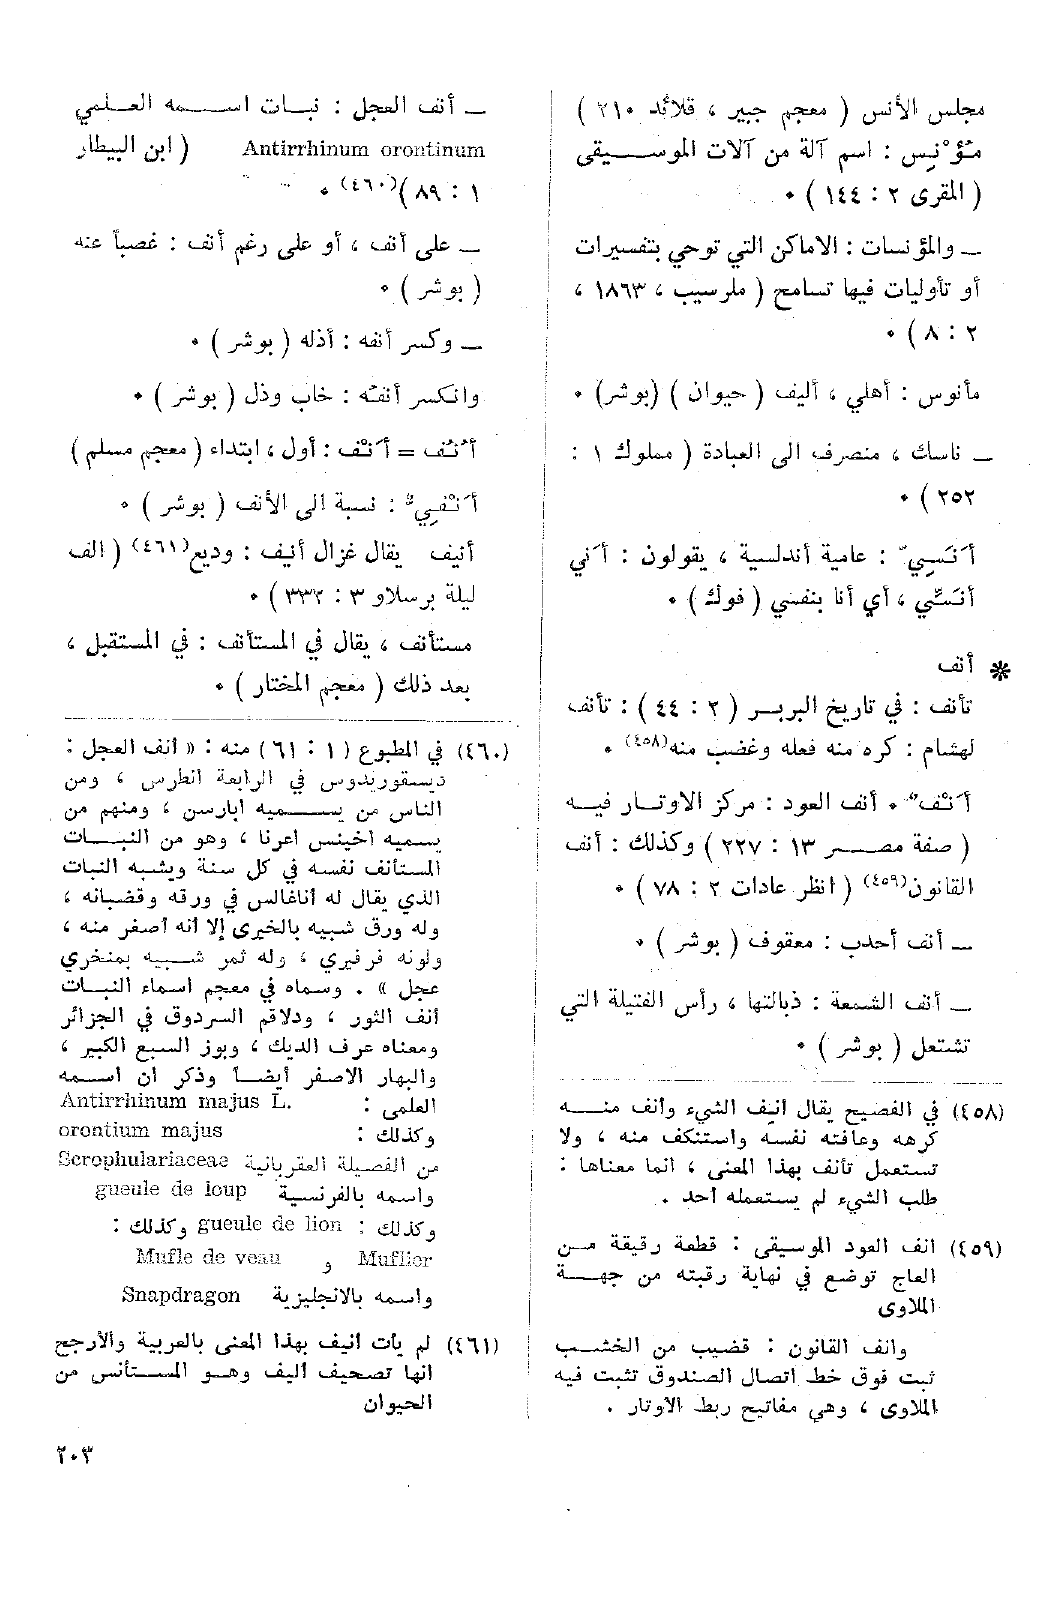 مجلس الأنس ( معجم جبير ، قلائد ٢١٠ )
مُؤْنِس : اسم آلة من آلات الموسيقى
( المقرى ٢ : ١٤٤ ) ٠
ـ والمؤنسات : الاماكن التي توحي بتفسيرات
أو تأوليات فيها تسامح ( ملرسيب ، ١٨٦٣ ،
٢ : ٨ ) ٠
مأنوس : أهلي ، أليف ( حيوان ) (بوشر) ٠
ـ ناسك ، منصرف الى العبادة ( مملوك ١ :
٢٥٢ ) ٠
أَنَسِي : عامية أندلسية ، يقولون : أَني
أنسَّي ، أي أنا بنفسي ( فوك ) ٠
* أنف
تأنف : في تاريخ البربر ( ٢ : ٤٤ ) : تأنف
لهشام : كره منه فعله وغضب منه(٤٥٨) ٠
أَنْف ٠ أنف العود : مركز الاوتار فيه
( صفة مصر ١٣ : ٢٢٧ ) وكذلك : أنف
القانون(٤٥٩) ( انظر عادات ٢ : ٧٨ ) ٠
ـ أنف أحدب : معقوف ( بوشر ) ٠
ـ أنف الشمعة : ذبالتها ، رأس الفتيلة التي
تشتعل ( بوشر ) ٠
(٤٥٨) في الفصيح يقال أنِف الشيء وأنف منه
كرهه وعافته نفسه واستنكف منه ، ولا
تستعمل تأنف بهذا المعنى ، انما معناها :
طلب الشيء لم يستعمله أحد .
(٤٥٩) انف العود الموسيقى : قطعة رقيقة من
العاج توضع في نهاية رقبته من جهة
الملاوى
وانف القانون : قضيب من الخشب
ثبت فوق خط اتصال الصندوق تثبت فيه
الملاوى ، وهي مفاتيح ربط الاوتار .
ـ أنف العجل : نبات اسمه العلمي
Antirrhinum orontinum ( ابن البيطار
١ : ٨٩ )(٤٦٠) ٠
ـ على أنف ، أو على رغم أنف : غصباً عنه
( بوشر ) ٠
ـ وكسر أنفه : أذله ( بوشر ) ٠
وانكسر أنفُه : خاب وذل ( بوشر ) ٠
أُنُف = أَنْف : أول ، ابتداء ( معجم مسلم )
أَنْفِيّ : نسبة الى الأنف ( بوشر ) ٠
أنيف يقال غزال أنيف : وديع(٤٦١) ( الف
ليلة برسلاو ٣ : ٣٣٢ ) ٠
مستأنف ، يقال في المستأنف : في المستقبل ،
بعد ذلك ( معجم المختار ) ٠
(٤٦٠) في المطبوع ( ١ : ٦١ ) منه : « أنف العجل :
ديسقوريدوس في الرابعة انطرس ، ومن
الناس من يسميه أبارسن ، ومنهم من
يسميه أخينس أعرنا ، وهو من النبات
المستأنف نفسه في كل سنة ويشبه النبات
الذي يقال له أناغالس في ورقه وقضبانه ،
وله ورق شبيه بالخيرى إلا أنه أصغر منه ،
ولونه فرفيري ، وله ثمر شبيه بمنخري
عجل » . وسماه في معجم اسماء النبات
أنف الثور ، ودلاقم السردوق في الجزائر
ومعناه عرف الديك ، وبوز السبع الكبير ،
والبهار الاصفر أيضا وذكر أن اسمه
العلمي : Antirrhinum majus L.
وكذلك : orontium majus
من الفصيلة العقربانية Scrophulariaceae
واسمه بالفرنسية gueule de loup
وكذلك : gueule de lion وكذلك :
Muflier و Mufle de veau
واسمه بالانجليزية Snapdragon
(٤٦١) لم يأت أنيف بهذا المعنى بالعربية والأرجح
انها تصحيف أليف وهو المستأنس من
الحيوان
٢٠٣